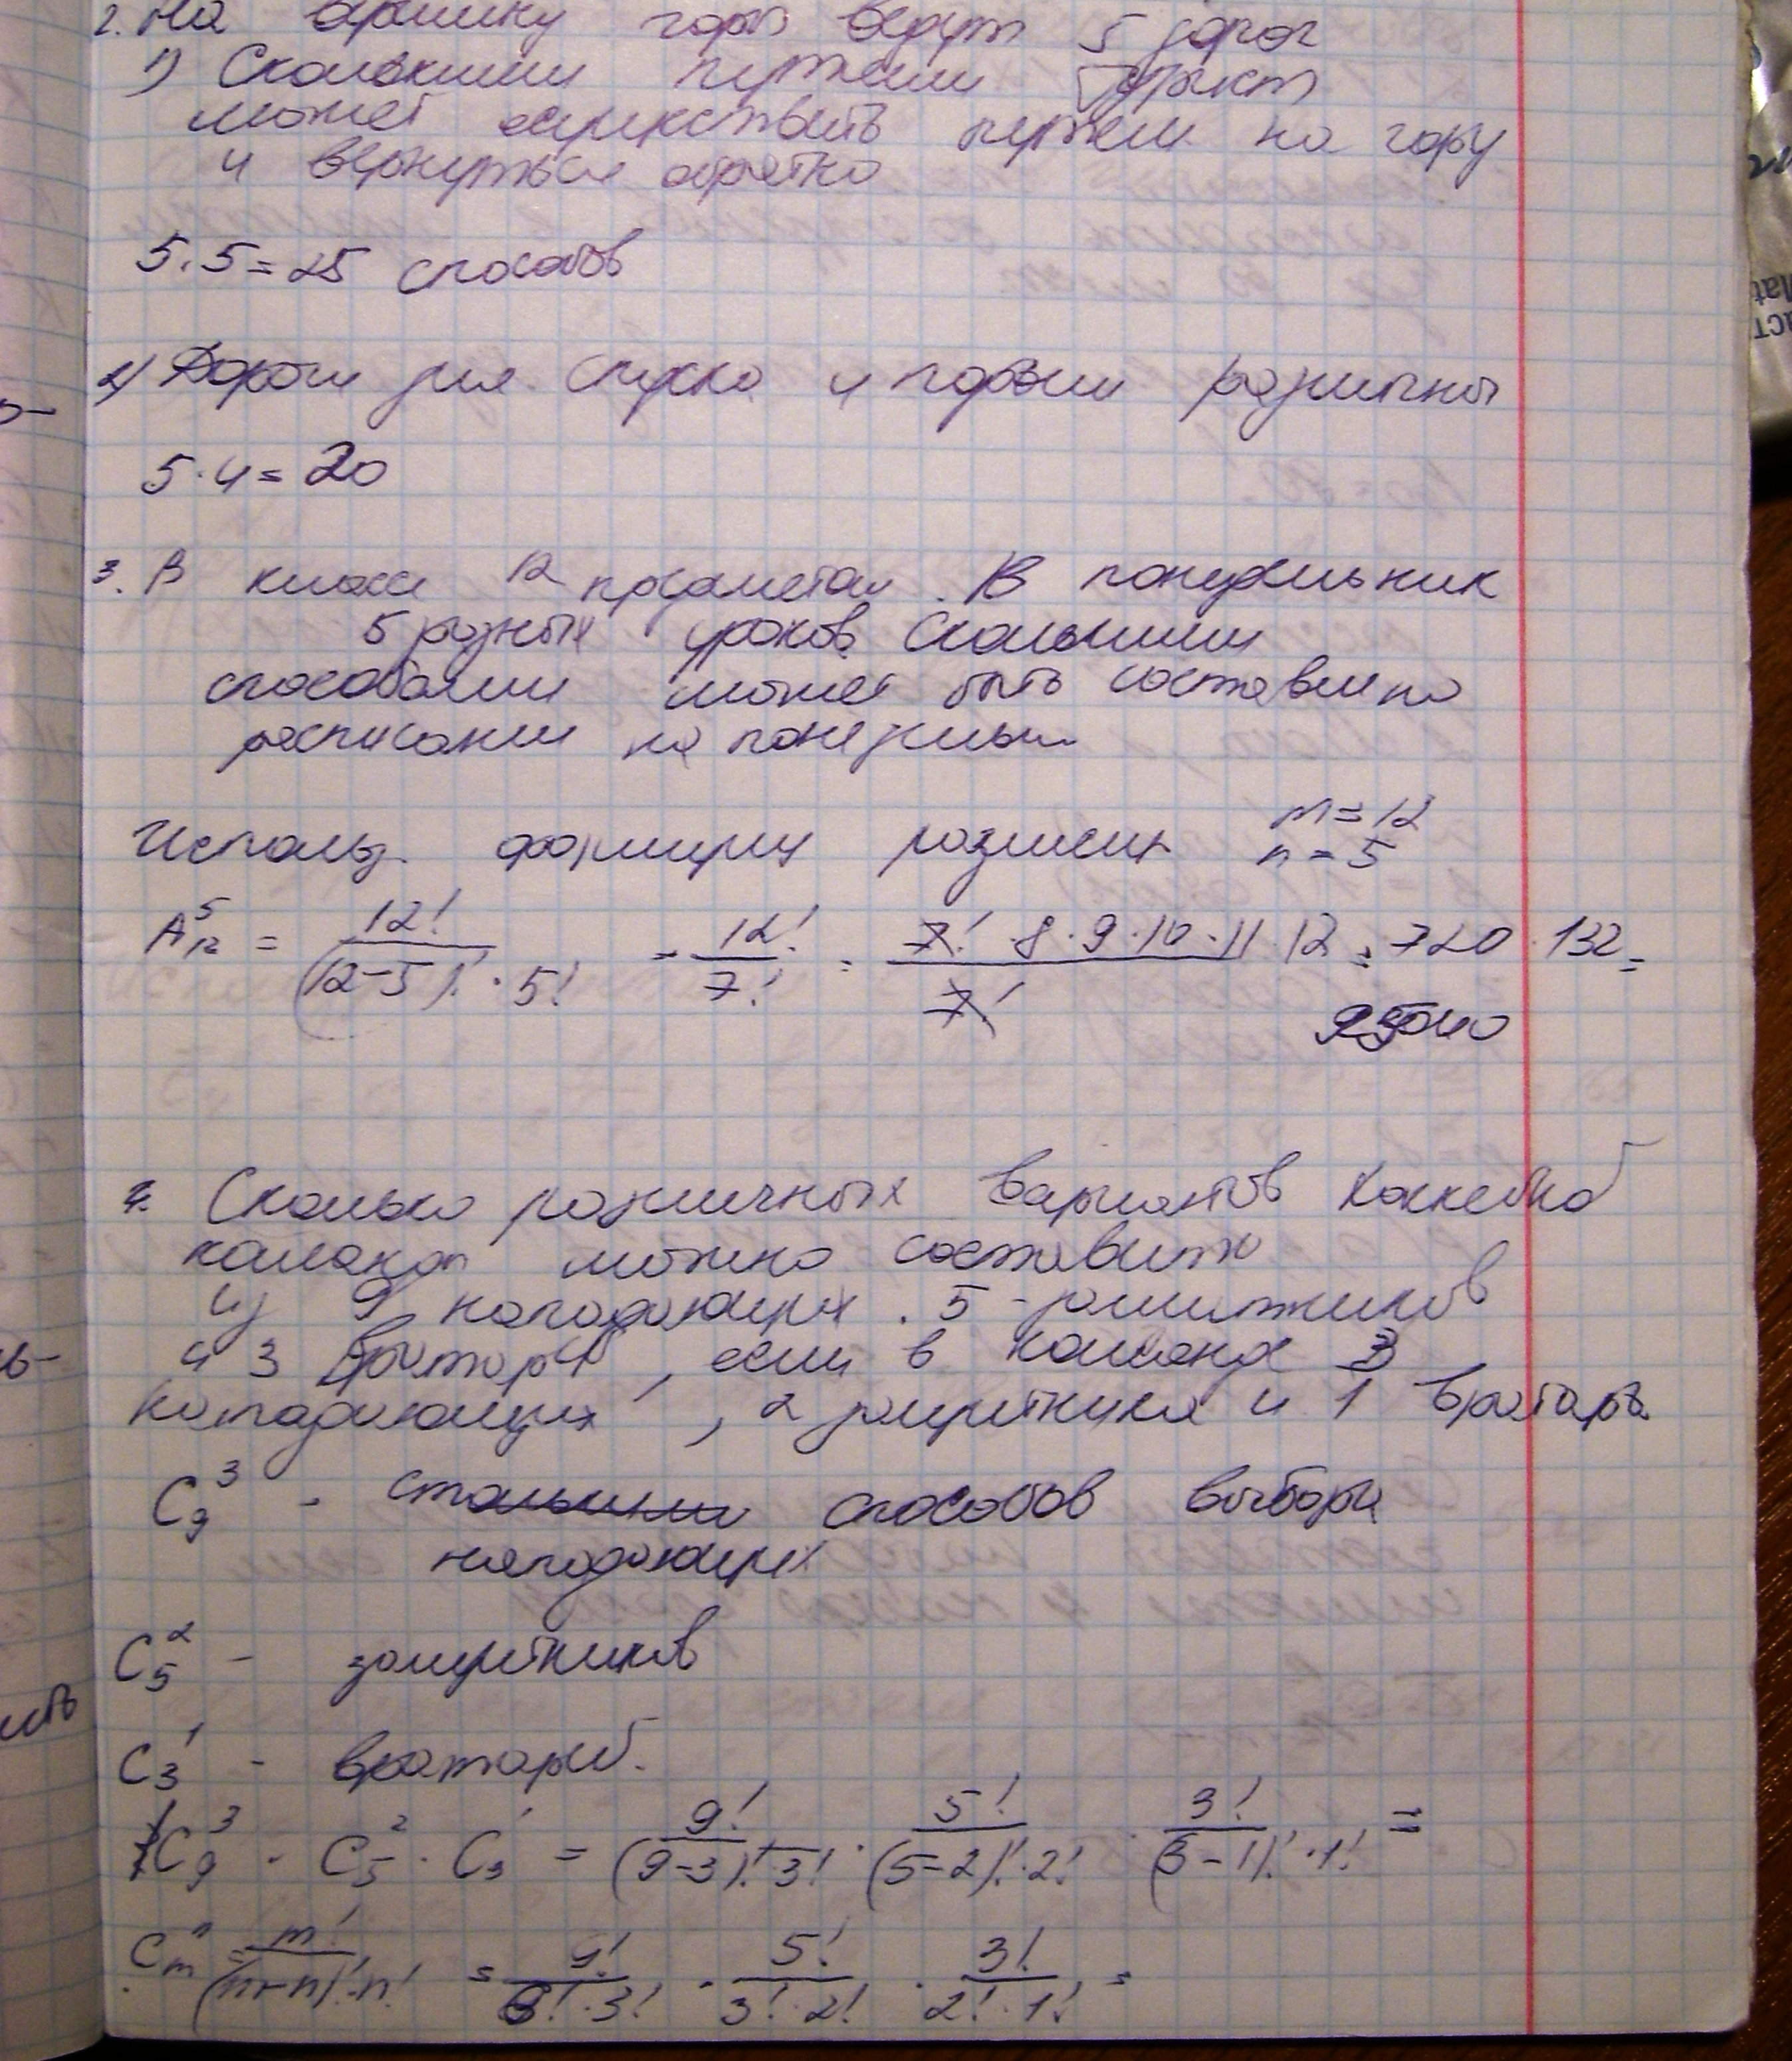 2. На вершину горы ведут 5 дорог
1) Сколькими путями турист
может осуществить путём на гору
и вернуться обратно
5·5=25 способов
2) Дороги для спуска и подъём различны
5·4=20
3. В классе 12 предметам. В понедельник
5 разных уроков Сколькими
способами может быть составлено
расписание на понедельн
Использ. формулу размещен m=12
n=5
A⁵₁₂ = 12!/(12-5)!·5! = 12!/7! = 7!·8·9·10·11·12/7! = 720·132=
95040
4. Сколько различных вариантов хоккейной
команды можно составить
из 9 нападающих. 5 - защитников
и 3 вратаря, если в команде 3
нападающих, 2 защитника и 1 вратарь
C₉³ - способов выбора
нападающих
C₅² - защитников
C₃¹ - вратарей.
C₉³ · C₅² · C₃¹ = 9!/(9-3)!·3! · 5!/(5-2)!·2! · 3!/(3-1)!·1! =
Cₘⁿ = m!/(m-n)!·n! = 9!/6!·3! · 5!/3!·2! · 3!/2!·1! =